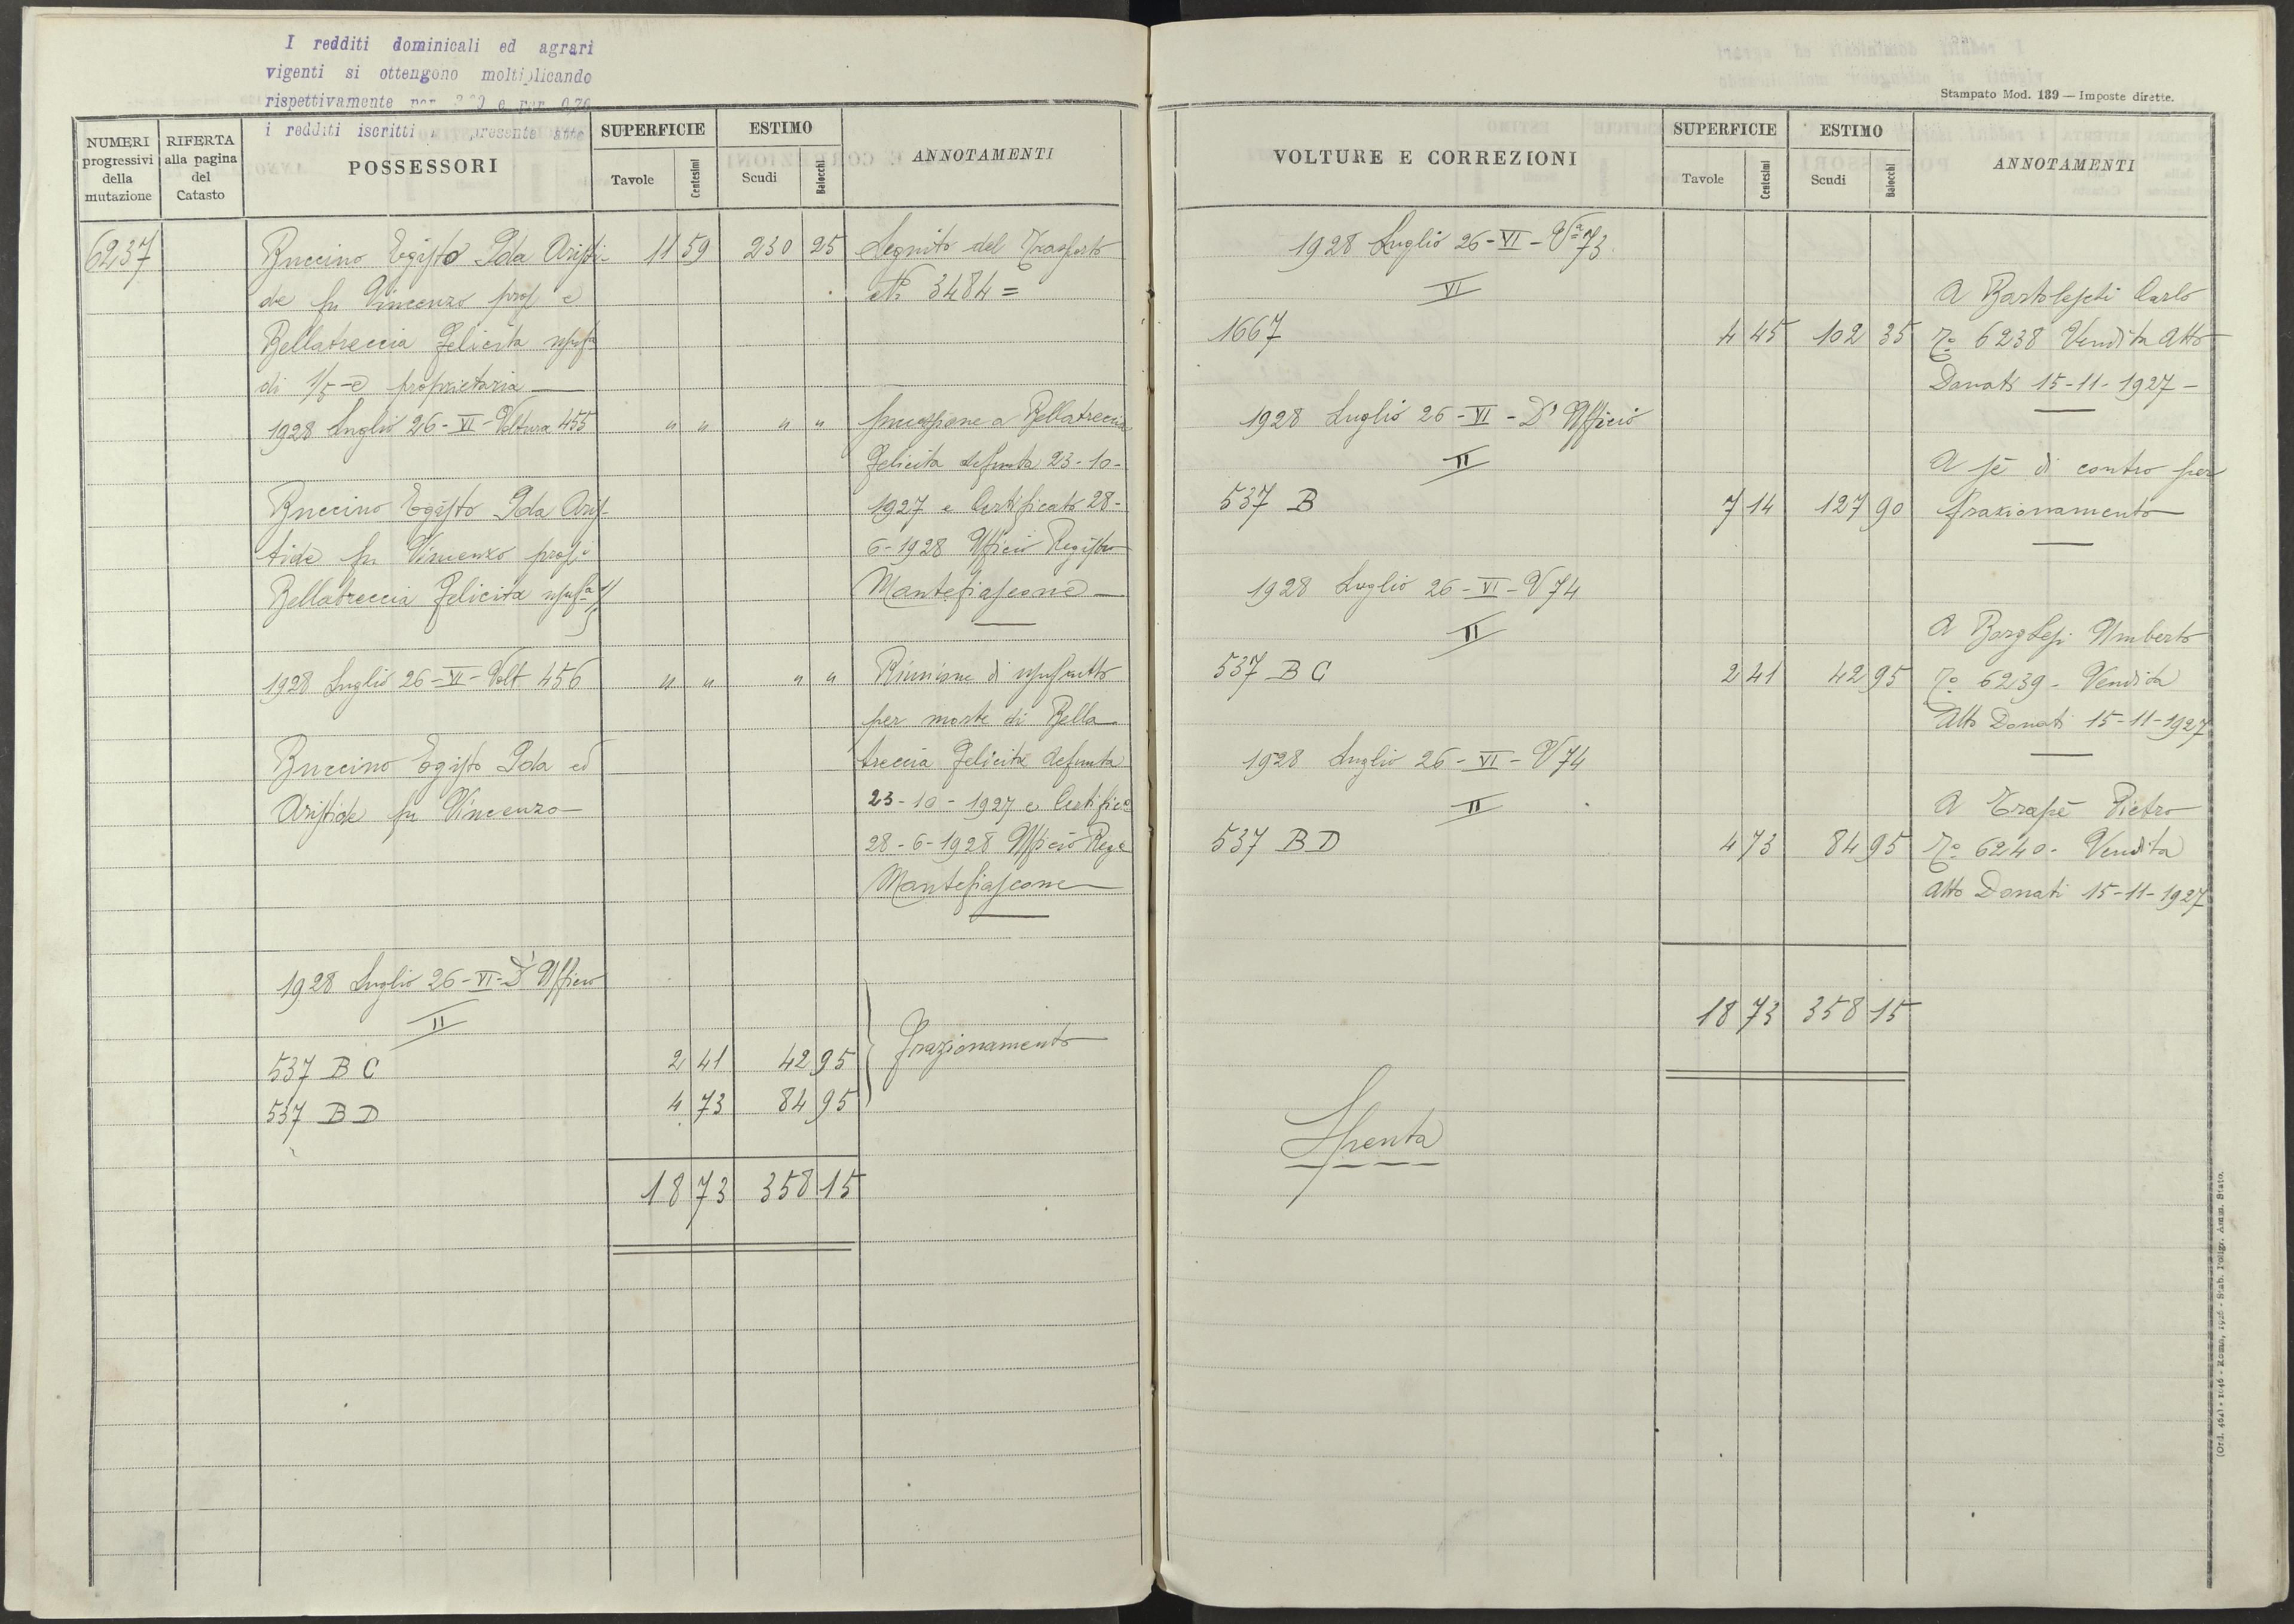 I redditi dominicali ed agrari
vigenti si ottengono moltiplicando
rispettivamente per e per 0,70
i redditi iscritti presente atto
NUMERI progressivi della mutazione
RIFERTA alla pagina del Catasto
POSSESSORI
SUPERFICIE
Tavole
Centesimi
ESTIMO
Scudi
Baiocchi
ANNOTAMENTI
6237
Buccino Egisto Ida Aristi- 11 59 230 25 Seguito del Trasporto
de fu Vincenzo prop e No 3484 =
Bellatreccia Felicita usufa
di 1/5 e proprietaria
1928 Luglio 26-VI-Voltura 455 " " " " Successione a Bellatreccia
Felicita defunta 23-10-
Buccino Egisto Ida Aris- 1927 e Certificato 28-
tide fu Vincenzo propi 6-1928 Ufficio Registro
Bellatreccia Felicita usufa Montefiascone
1928 Luglio 26-VI-Volt 456 " " " " Riunione di usufrutto
per morte di Bella
Buccino Egisto Ida ed treccia Felicita defunta
Aristide fu Vincenzo 23-10-1927 e Certifico
28-6-1928 Ufficio Rege
Montefiascone
1928 Luglio 26-VI-D'Ufficio
II
537 B C 2 41 42 95 frazionamento
537 B D 4 73 84 95
18 73 358 15
Stampato Mod. 139 — Imposte dirette.
VOLTURE E CORREZIONI
SUPERFICIE
Tavole
Centesimi
ESTIMO
Scudi
Baiocchi
ANNOTAMENTI
1928 Luglio 26-VI-Va 73
VI A Bartoleschi Carlo
1667 4 45 102 35 To 6238 Vendita Atto
Donati 15-11-1927-
1928 Luglio 26-VI-D'Ufficio
II A sé di contro per
537 B 7 14 127 90 frazionamento
1928 Luglio 26-VI-V 74
II A Borghesi Umberto
537 B C 2 41 42 95 To 6239- Vendita
Atto Donati 15-11-1927
1928 Luglio 26-VI-V 74
II A Trapè Pietro
537 B D 4 73 84 95 To 6240- Vendita
Atto Donati 15-11-1927
18 73 358 15
Spenta